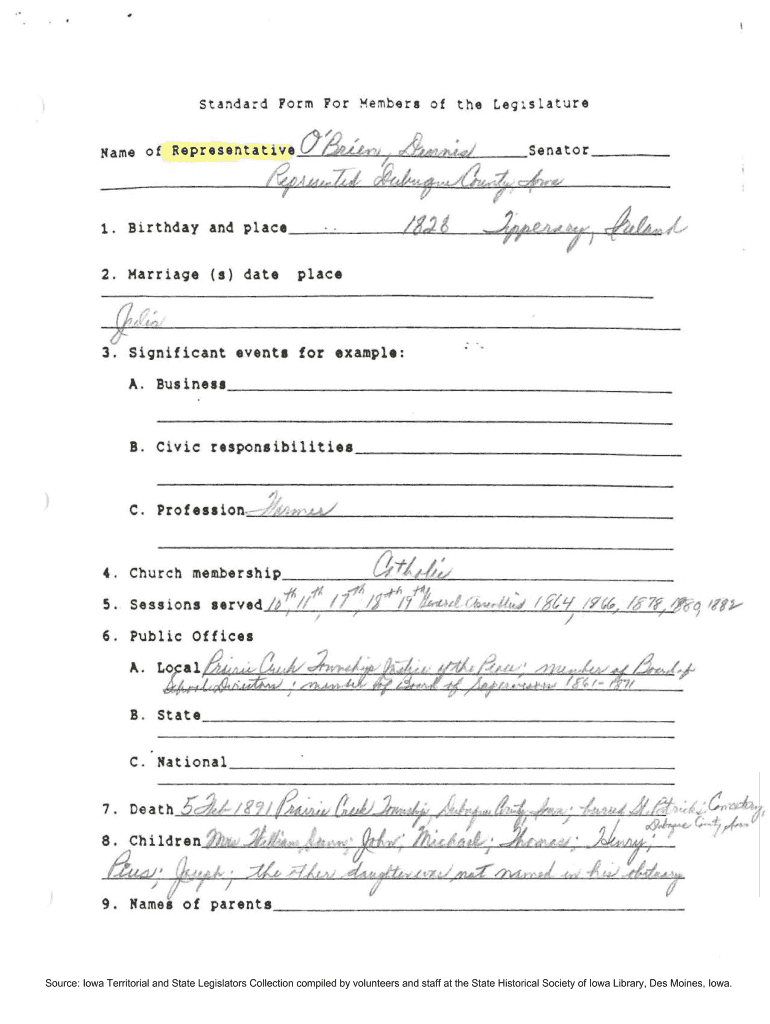 Standard Form For Members of the Legislature
Name of Representative O'Brien, Dennis Senator
Represented Dubuque County, Iowa
1. Birthday and place 1828 Tipperary, Ireland
2. Marriage (s) date place
Julia
3. Significant events for example:
A. Business
B. Civic responsibilities
C. Profession Farmer
4. Church membership Catholic
5. Sessions served 10th, 11th, 17th, 18th, 19th General Assemblies 1864, 1866, 1878, 1880, 1882
6. Public Offices
A. Local Prairie Creek Township Justice of the Peace; member of Board of
School Directors; member of Board of Supervisors 1861-1871
B. State
C. National
7. Death 5 Feb 1891 Prairie Creek Township, Dubuque County, Iowa; buried St. Patrick's Cemetery,
Dubuque County, Iowa
8. Children Mrs. William ; John; Michael; Thomas; Henry;
Pius; Joseph; the other daughter was not named in his obituary
9. Names of parents
Source: Iowa Territorial and State Legislators Collection compiled by volunteers and staff at the State Historical Society of Iowa Library, Des Moines, Iowa.